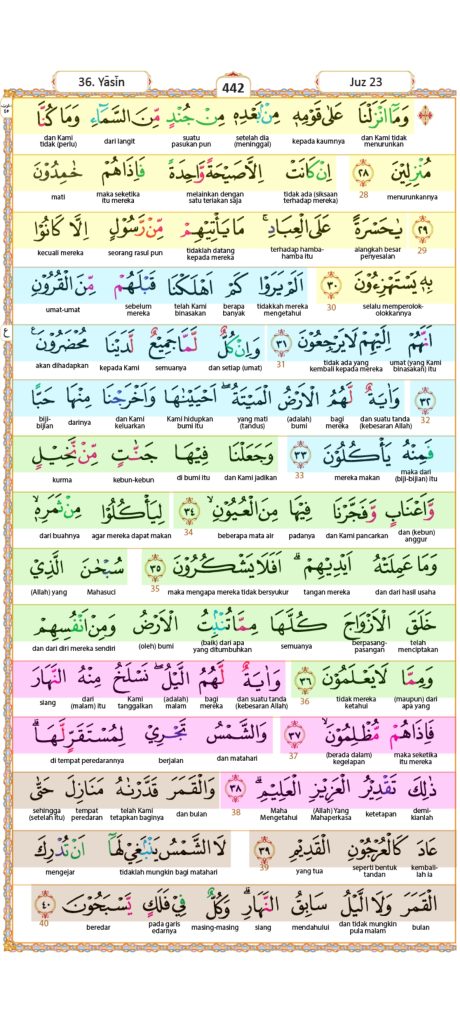 36. Yāsīn
442
Juz 23
وَمَآ اَنْزَلْنَا عَلٰى قَوْمِهٖ مِنْۢ بَعْدِهٖ مِنْ جُنْدٍ مِّنَ السَّمَاۤءِ وَمَا كُنَّا
dan Kami tidak menurunkan kepada kaumnya setelah dia (meninggal) suatu pasukan pun dari langit dan Kami tidak (perlu)
مُنْزِلِيْنَ ٢٨ اِنْ كَانَتْ اِلَّا صَيْحَةً وَّاحِدَةً فَاِذَا هُمْ خٰمِدُوْنَ
menurunkannya 28 tidak ada (siksaan terhadap mereka) melainkan dengan satu teriakan saja maka seketika itu mereka mati
٢٩ يٰحَسْرَةً عَلَى الْعِبَادِۚ مَا يَأْتِيْهِمْ مِّنْ رَّسُوْلٍ اِلَّا كَانُوْا
29 alangkah besar penyesalan terhadap hamba-hamba itu tidaklah datang kepada mereka seorang rasul pun kecuali mereka
بِهٖ يَسْتَهْزِءُوْنَ ٣٠ اَلَمْ يَرَوْا كَمْ اَهْلَكْنَا قَبْلَهُمْ مِّنَ الْقُرُوْنِ
selalu memperolok-olokkannya 30 tidakkah mereka mengetahui berapa banyak telah Kami binasakan sebelum mereka umat-umat
اَنَّهُمْ اِلَيْهِمْ لَا يَرْجِعُوْنَ ٣١ وَاِنْ كُلٌّ لَّمَّا جَمِيْعٌ لَّدَيْنَا مُحْضَرُوْنَ
umat (yang Kami binasakan) itu tidak ada yang kembali kepada mereka 31 dan setiap (umat) semuanya kepada Kami akan dihadapkan
٣٢ وَاٰيَةٌ لَّهُمُ الْاَرْضُ الْمَيْتَةُۖ اَحْيَيْنٰهَا وَاَخْرَجْنَا مِنْهَا حَبًّا
32 dan suatu tanda (kebesaran Allah) bagi mereka (adalah) bumi yang mati (tandus) Kami hidupkan bumi itu dan Kami keluarkan darinya biji-bijian
فَمِنْهُ يَأْكُلُوْنَ ٣٣ وَجَعَلْنَا فِيْهَا جَنّٰتٍ مِّنْ نَّخِيْلٍ
maka dari (biji-bijian) itu mereka makan 33 dan Kami jadikan di bumi itu kebun-kebun kurma
وَّاَعْنَابٍ وَّفَجَّرْنَا فِيْهَا مِنَ الْعُيُوْنِۙ ٣٤ لِيَأْكُلُوْا مِنْ ثَمَرِهٖۙ
dan (kebun) anggur dan Kami pancarkan padanya beberapa mata air 34 agar mereka dapat makan dari buahnya
وَمَا عَمِلَتْهُ اَيْدِيْهِمْۗ اَفَلَا يَشْكُرُوْنَ ٣٥ سُبْحٰنَ الَّذِيْ
dan dari hasil usaha tangan mereka maka mengapa mereka tidak bersyukur 35 Mahasuci (Allah) yang
خَلَقَ الْاَزْوَاجَ كُلَّهَا مِمَّا تُنْۢبِتُ الْاَرْضُ وَمِنْ اَنْفُسِهِمْ
telah menciptakan berpasang-pasangan semuanya (baik) dari apa yang ditumbuhkan (oleh) bumi dan dari diri mereka sendiri
وَمِمَّا لَا يَعْلَمُوْنَ ٣٦ وَاٰيَةٌ لَّهُمُ الَّيْلُۖ نَسْلَخُ مِنْهُ النَّهَارَ
(maupun) dari apa yang tidak mereka ketahui 36 dan suatu tanda (kebesaran Allah) bagi mereka (adalah) malam Kami tanggalkan dari (malam) itu siang
فَاِذَا هُمْ مُّظْلِمُوْنَۙ ٣٧ وَالشَّمْسُ تَجْرِيْ لِمُسْتَقَرٍّ لَّهَاۗ
maka seketika itu mereka (berada dalam) kegelapan 37 dan matahari berjalan di tempat peredarannya
ذٰلِكَ تَقْدِيْرُ الْعَزِيْزِ الْعَلِيْمِۗ ٣٨ وَالْقَمَرَ قَدَّرْنٰهُ مَنَازِلَ حَتّٰى
demi-kianlah ketetapan (Allah) Yang Mahaperkasa Maha Mengetahui 38 dan bulan telah Kami tetapkan baginya tempat peredaran sehingga (setelah itu)
عَادَ كَالْعُرْجُوْنِ الْقَدِيْمِ ٣٩ لَا الشَّمْسُ يَنْۢبَغِيْ لَهَآ اَنْ تُدْرِكَ
kembali-lah ia seperti bentuk tandan yang tua 39 tidaklah mungkin bagi matahari mengejar
الْقَمَرَ وَلَا الَّيْلُ سَابِقُ النَّهَارِۗ وَكُلٌّ فِيْ فَلَكٍ يَّسْبَحُوْنَ ٤٠
bulan dan tidak mungkin pula malam mendahului siang masing-masing pada garis edarnya beredar 40